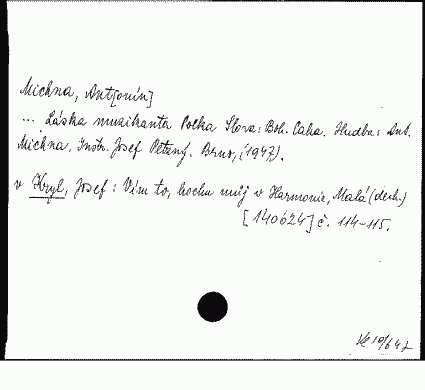 Michna, Ant[onín]
... Láska muzikanta Polka Slova: Boh. Caha. Hudba: Ant.
Michna. Instr. Josef Pěkný. Brno, (1947).
v Kryl, Josef: Vím to, hochu můj v Harmonie, Malá (dech.)
[140624] č. 114-115.
10/6 47